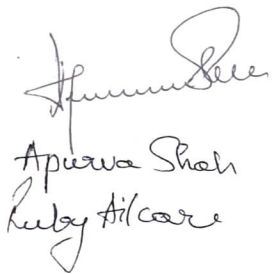 Apurva Shah
Ruby Ailcare